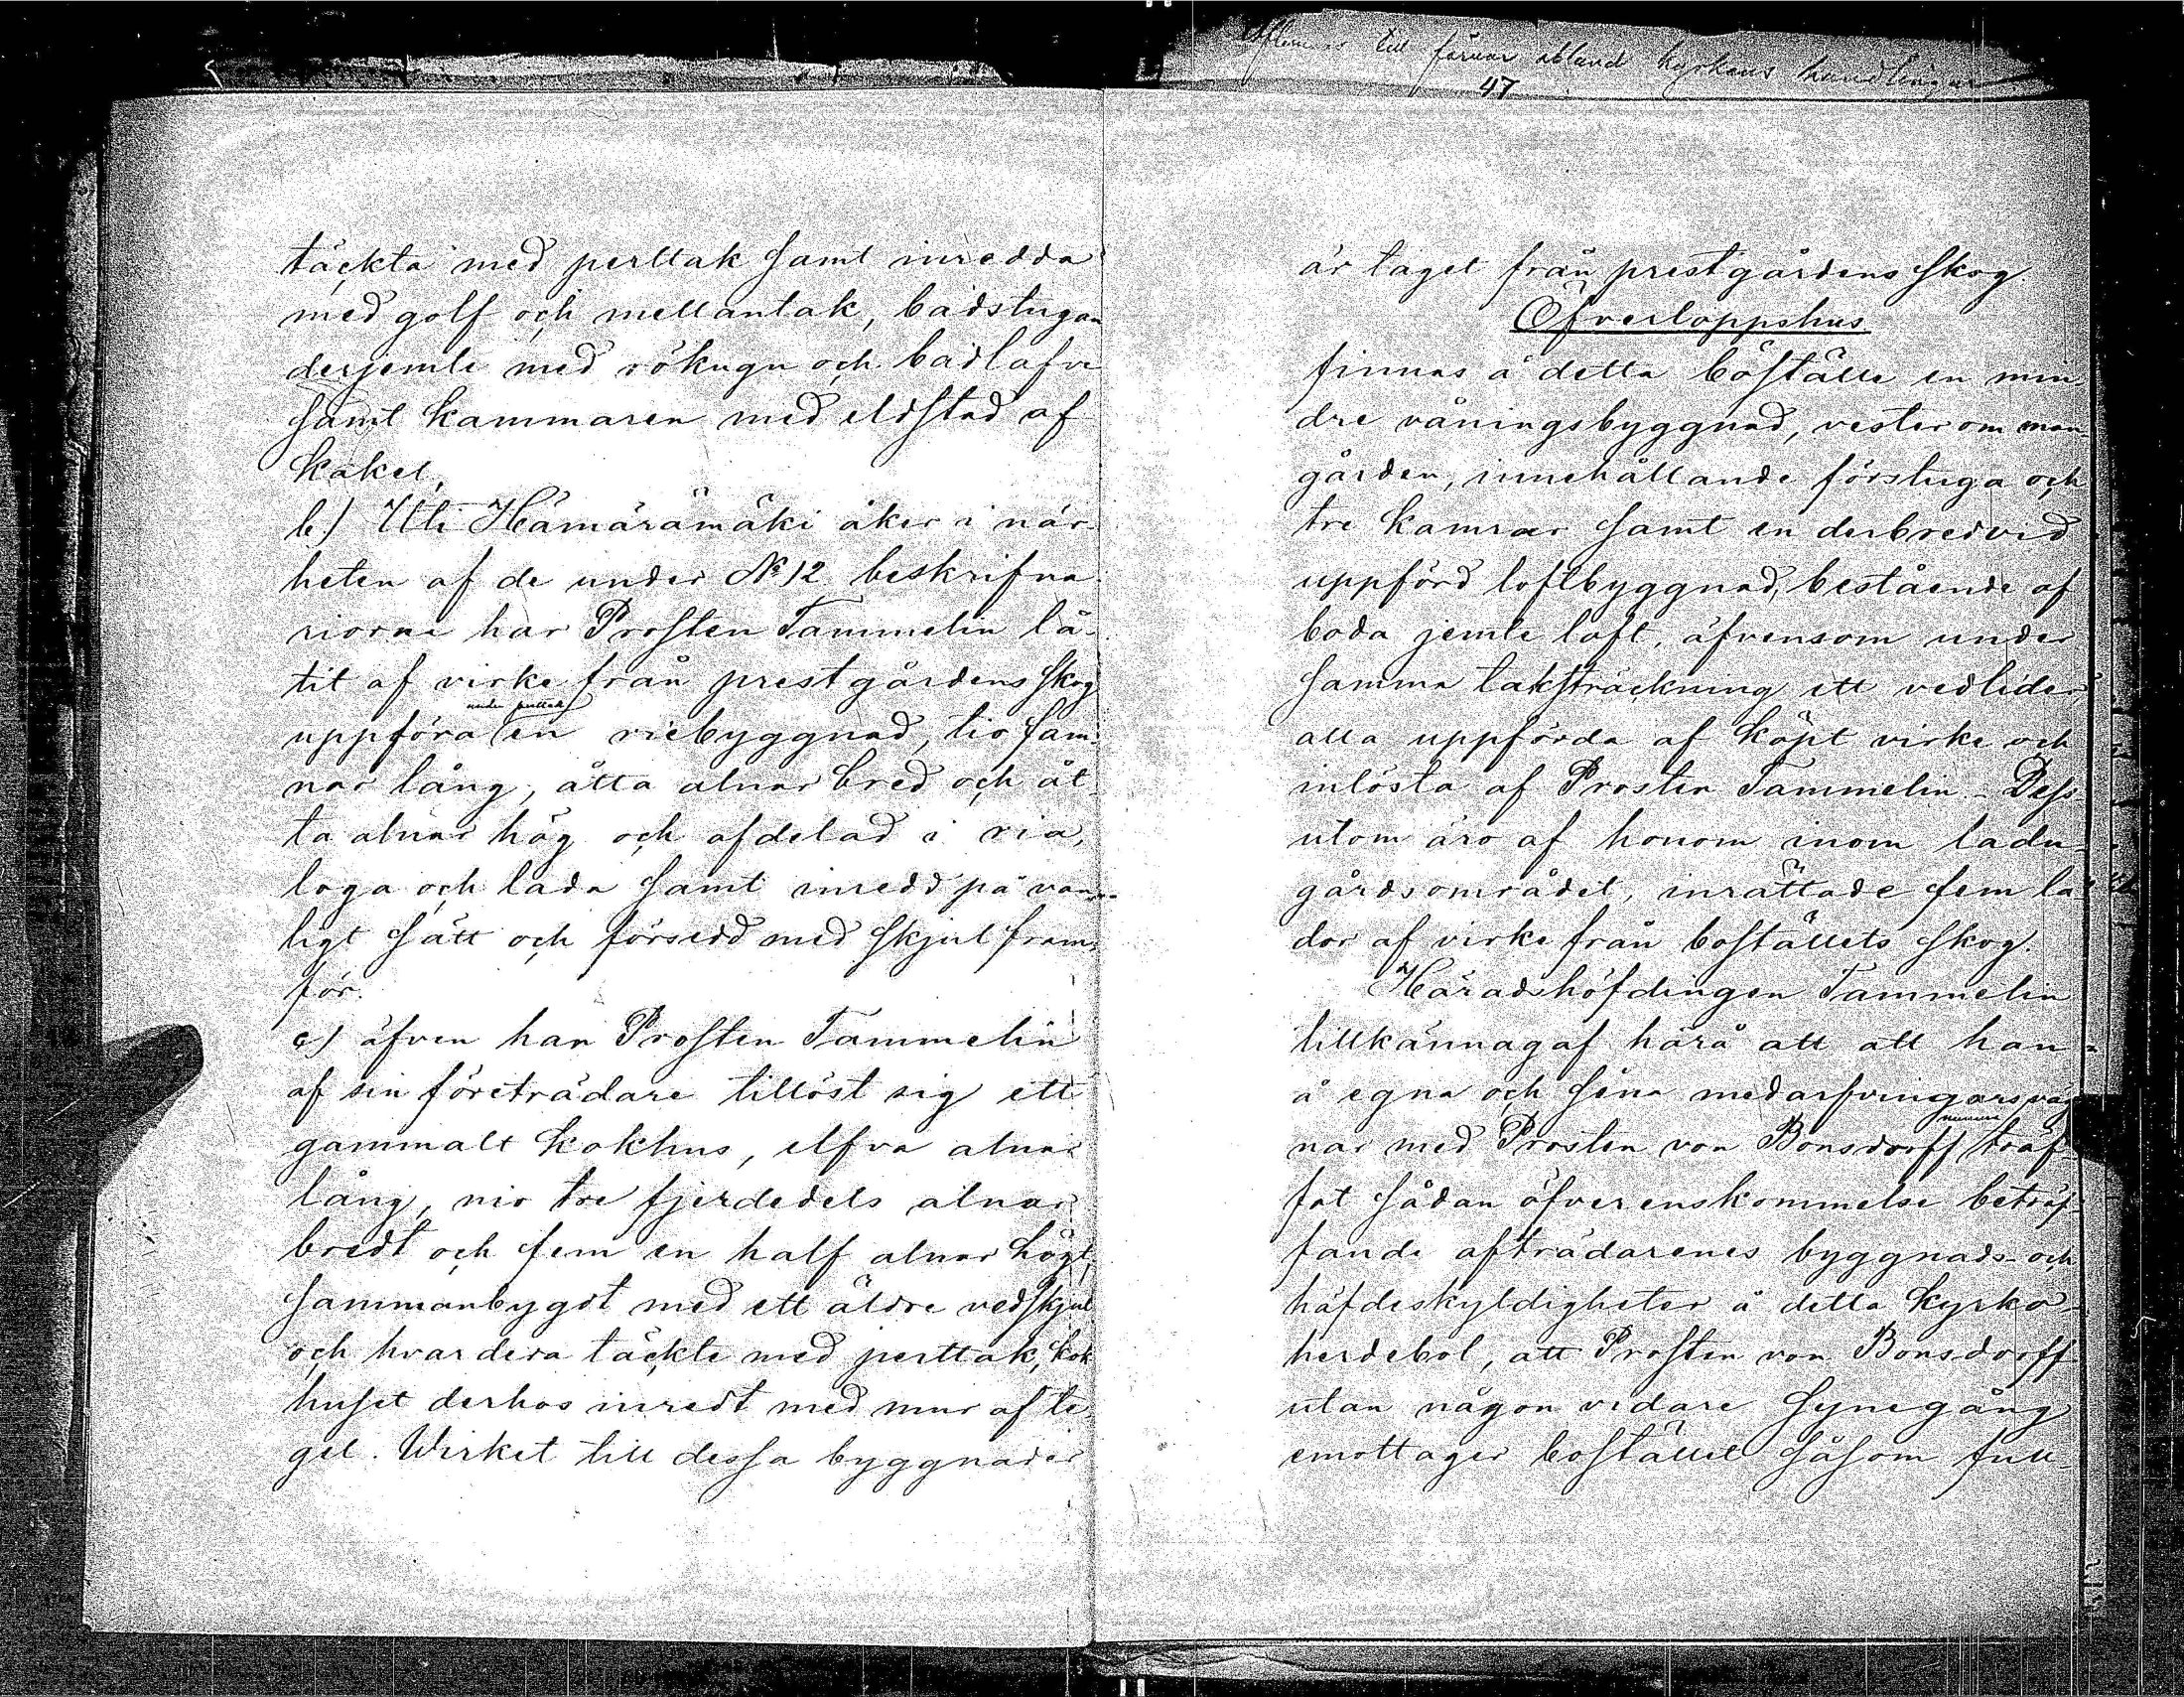 täckta med perttak samt inredda
med golf och mellantak, badstugan
derjemte med rökugn och badlafve
samt kammaren med eldstad af
kakel.
b.) Uti Hämärämäki åker i när-
heten af de under No 12 beskrifna
riorne har Prosten Tammelin lå-
tit af virke från prestgårdens skog
under perttak
uppföra en riebyggnad, tio fam-
nar lång, åtta alnar bred och åt-
ta alnar hög och afdelad i ria,
loga och lada samt inredd på van-
ligt sätt och försedd med skjul fram-
för.
c) äfven har Prosten Tammelin
af sin företrädare tillöst sig ett
gammalt kokhus, elfva alnar
lång, nio tre fjerdedels alnar
bredt och fem en half alnar högt,
sammanbygdt med ett äldre vedskjul
och hvardera täckte med perttak, kok
huset derhos inredt med mur af te-
gel. Wirket till dessa byggnader
till kyrkans handlingar
47
är taget från prestgårdens skog.
Öfverloppshus
finnas å detta boställe en min-
dre våningsbyggnad, vester om man-
gården, innehållande förstuga och
tre kamrar samt en derbredvid
uppförd loftbyggnad, bestående af
boda jemte loft, äfvensom under
samma taksträckning ett vedlider,
alla uppförda af köpt virke och
inlösta af Prosten Tammelin. - Dess-
utom äro af honom inom ladu-
gårdsområdet, inrättade fem la-
dor af virke från boställets skog.
Häradshöfdingen Tammelin
tillkännagaf härå att att han
å egna och sina medarfvingars väg
numera
nar med Prosten von Bonsdorff träf-
fat sådan öfverenskommelse beträf-
fande afträdarenes byggnads- och
häfdeskyldigheter å detta kyrko-
herdebol, att Prosten von Bonsdorff
utan någon vidare synegång
emottager bostället såsom full-